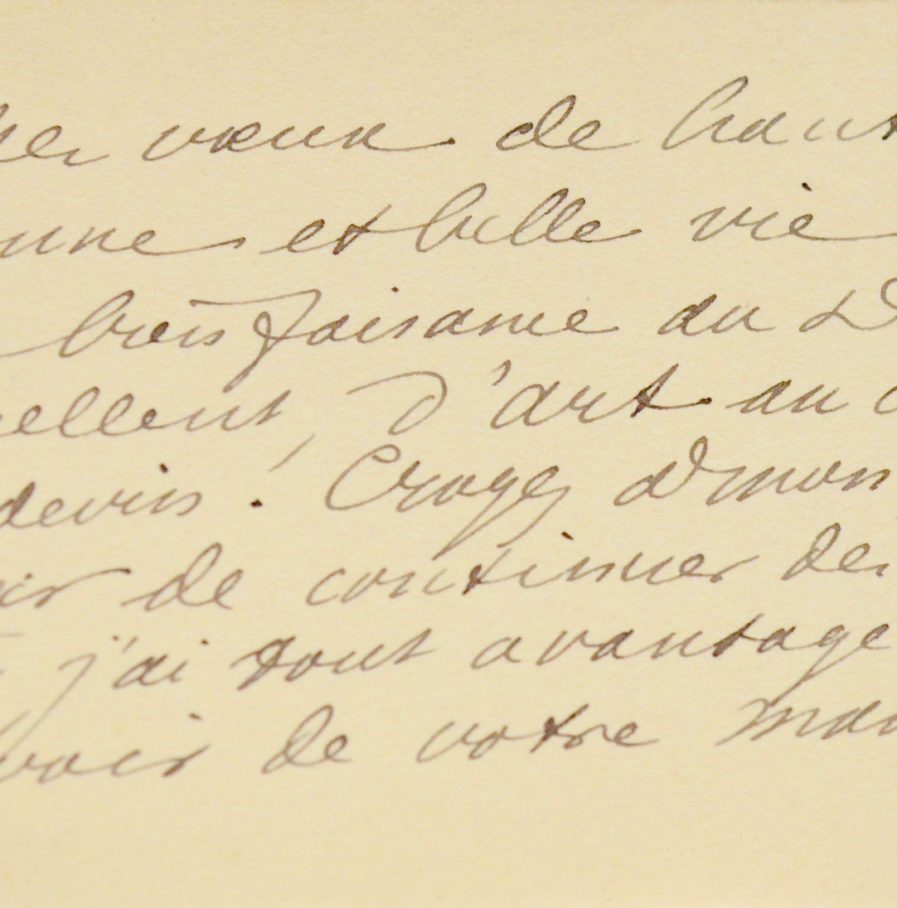 vœux de haut
une et belle vie
bienfaisance au D
ellent, d'art au
devin! Croyez à mon
ir de continuer de
j'ai tout avantage
voir de votre